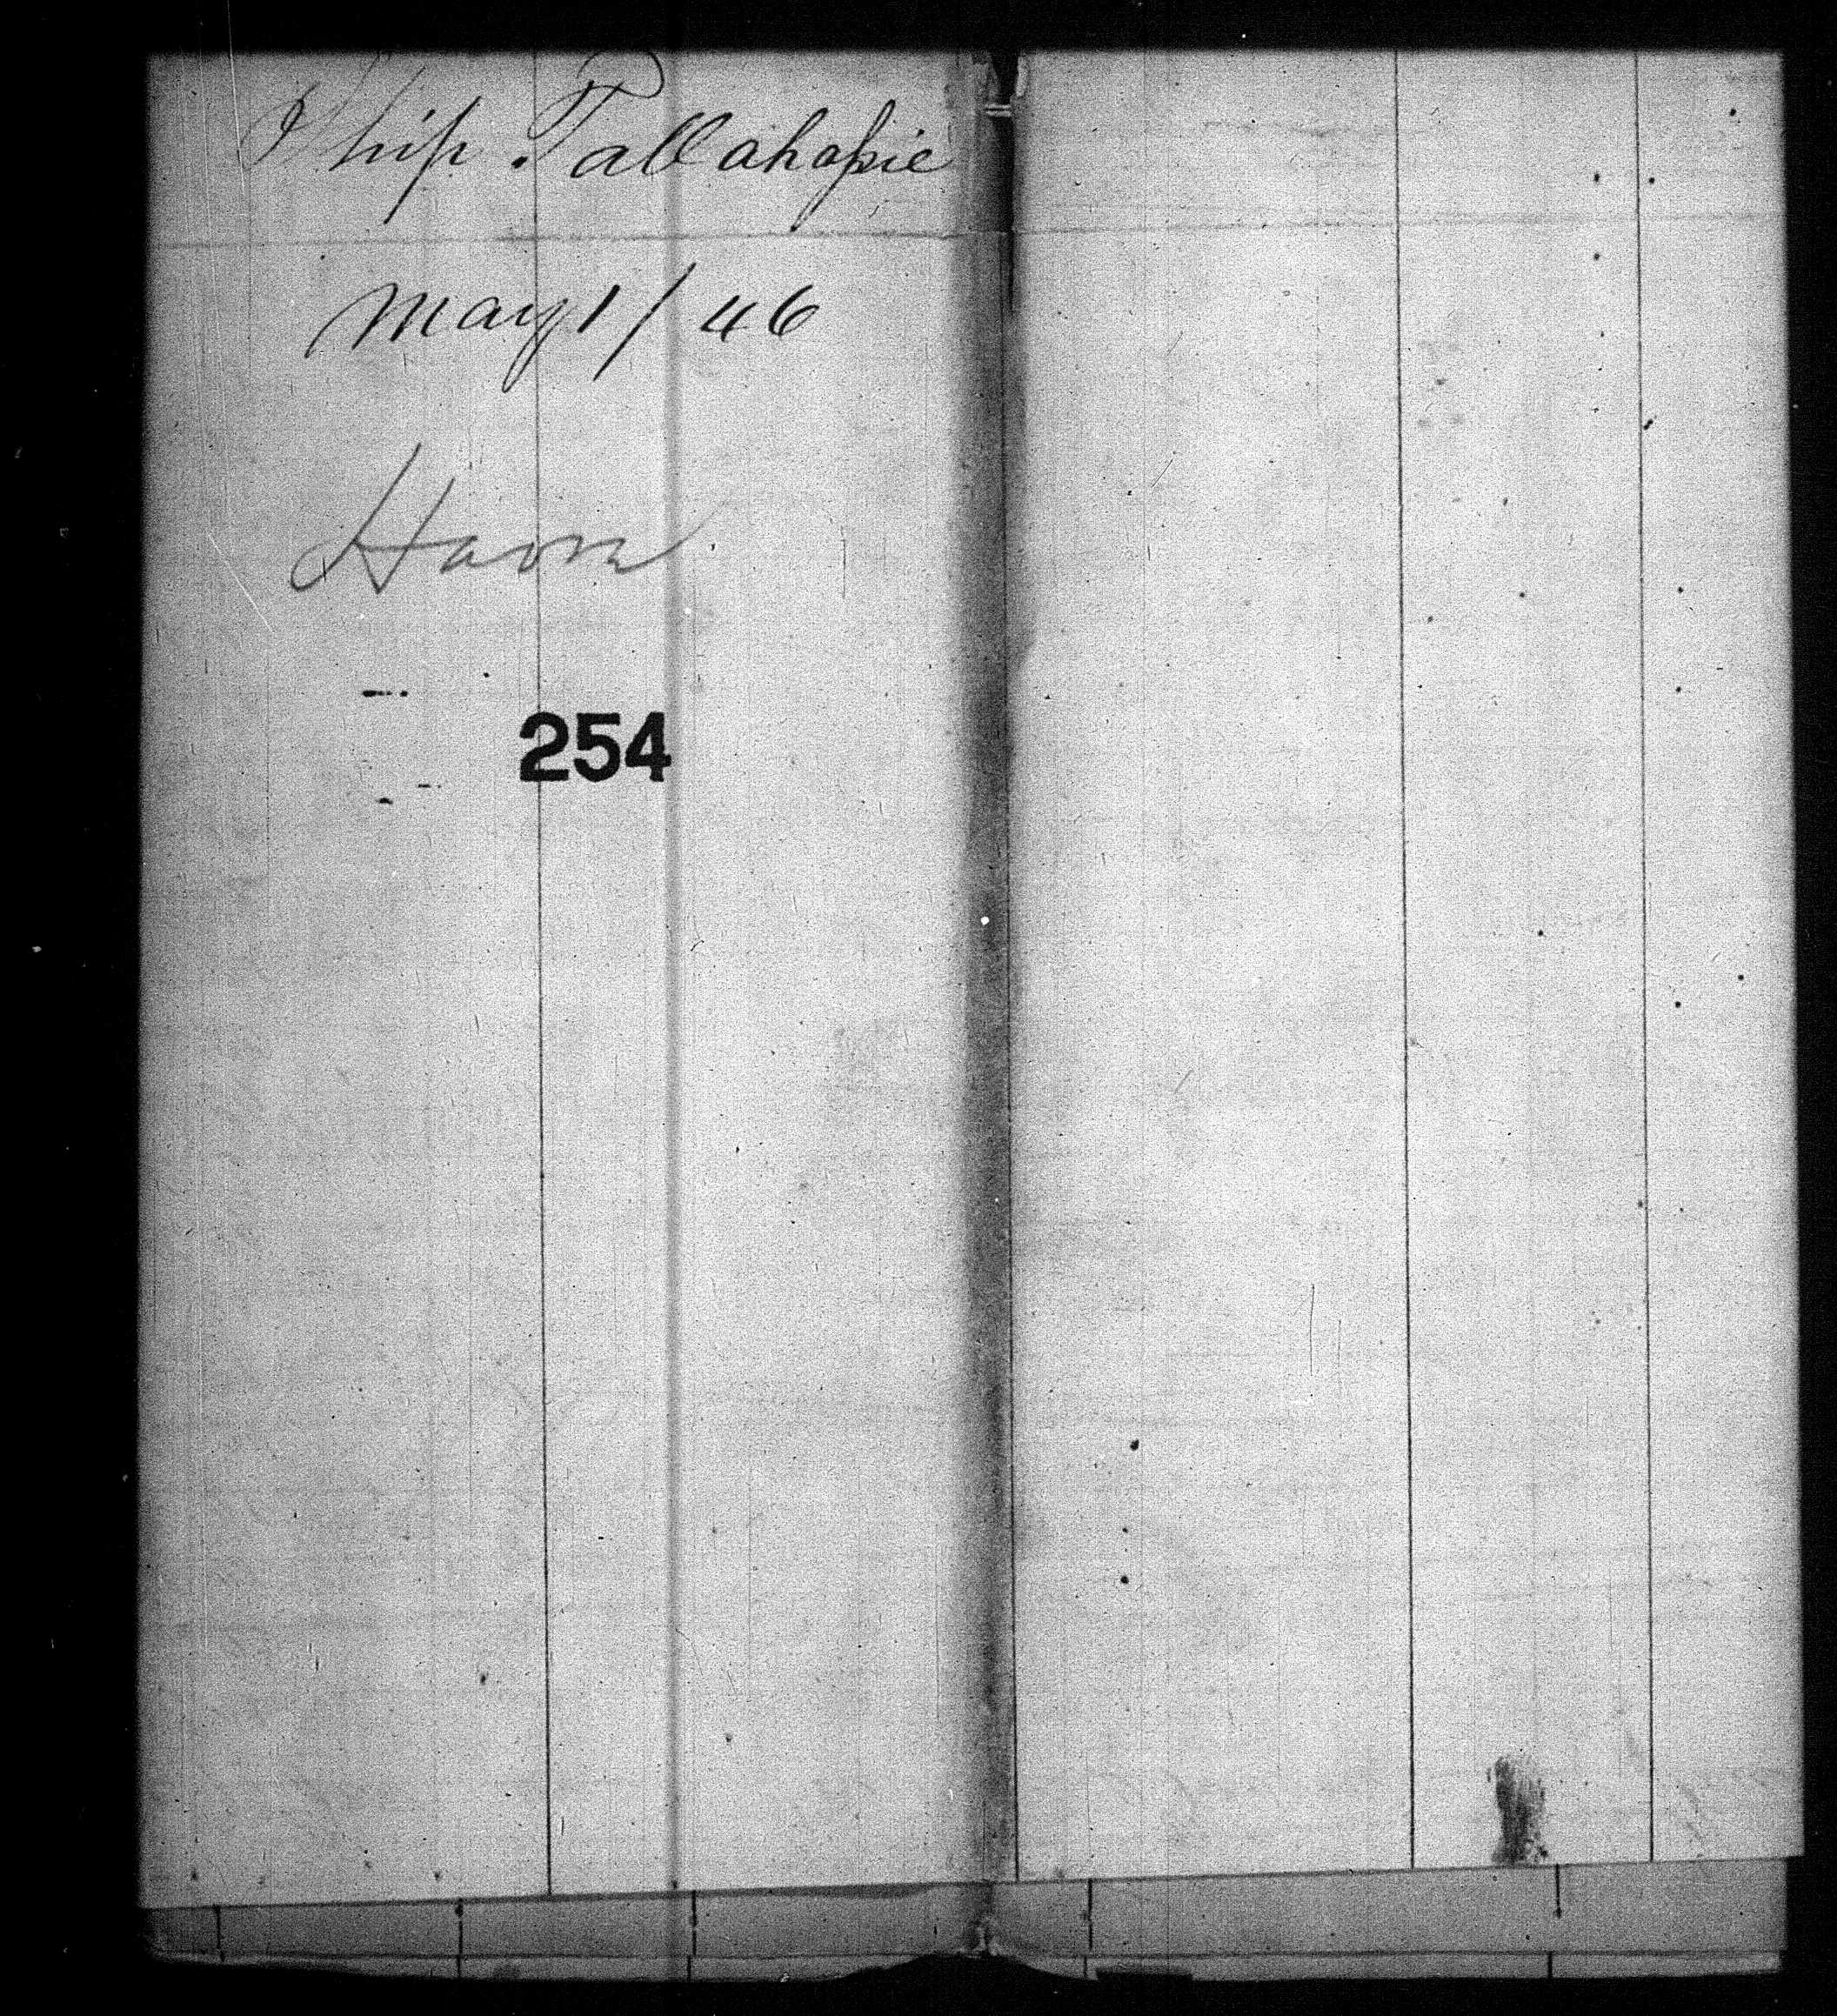 Ship Tallahassie
May 1/46
Havre
254